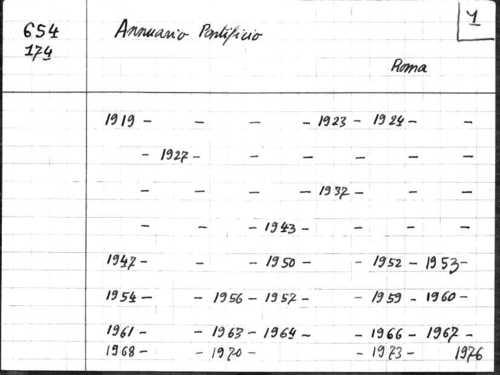 654 Annuario Pontificio 1
174
Roma
1919 - - - - 1923 - 1924 - -
- 1927 - - - - - -
- - - - 1937 - - -
- - - 1943 - - - -
1947 - - - 1950 - - 1952 - 1953 -
1954 - - 1956 - 1957 - - 1959 - 1960 -
1961 - - 1963 - 1964 - - 1966 - 1967 -
1968 - - 1970 - - 1973 - 1976